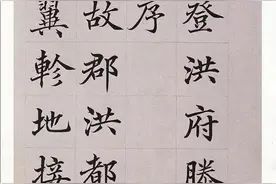 登洪府滕
序
故郡洪都
翼軫地接